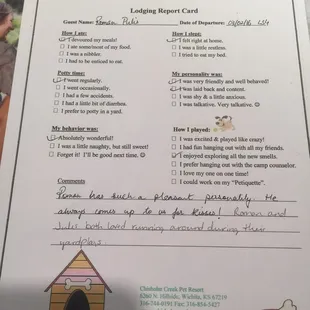 Lodging Report Card
Guest Name: Roman Date of Departure:
How I ate: How I slept:
☑ I devoured my meals! ☑ I felt right at home.
☐ I ate some/most of my food. ☐ I was a little restless.
☐ I was a nibbler. ☐ I tried to eat my bed.
☐ I had to be enticed to eat.
Potty time: My personality was:
☑ I went regularly. ☑ I was very friendly and well behaved!
☐ I went occasionally. ☑ I was laid back and content.
☐ I had a few accidents. ☐ I was shy & a little anxious.
☐ I had a little bit of diarrhea. ☐ I was talkative. Very talkative. ☺
☐ I prefer to potty in a yard.
My behavior was: How I played:
☑ Absolutely wonderful! ☐ I was excited & played like crazy!
☐ I was a little naughty, but still sweet! ☐ I had fun hanging out with all my friends.
☐ Forget it! I'll be good next time. ☺ ☑ I enjoyed exploring all the new smells.
☐ I prefer hanging out with the camp counselor.
☐ I love my one on one time!
☐ I could work on my "Petiquette".
Comments
Roman has such a pleasant personality. He
always comes up to us for kisses! Roman and
Julie both loved running around during their
yardplays.
Chisholm Creek Pet Resort
8260 N. Hillside, Wichita, KS 67219